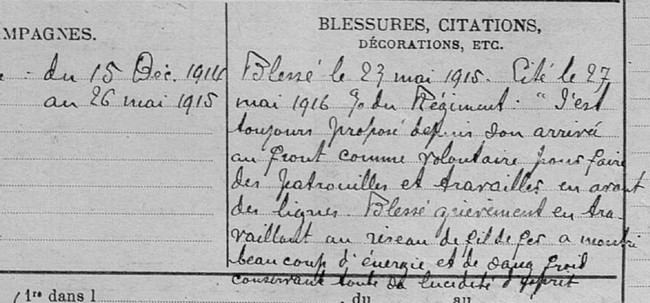 MPAGNES.
BLESSURES, CITATIONS,
DÉCORATIONS, ETC.
du 15 Déc. 1914
au 26 mai 1915
Blessé le 23 mai 1915. Cité le 27
mai 1916 % du Régiment : "S'est
toujours proposé depuis son arrivé
au front comme volontaire pour faire
des patrouilles et travailles en avant
des lignes. Blessé grièvement en tra-
vaillant au réseau de fil de fer a montré
beaucoup d'énergie et de sang froid
conservant toute sa lucidité d'esprit
1re dans l
du
au